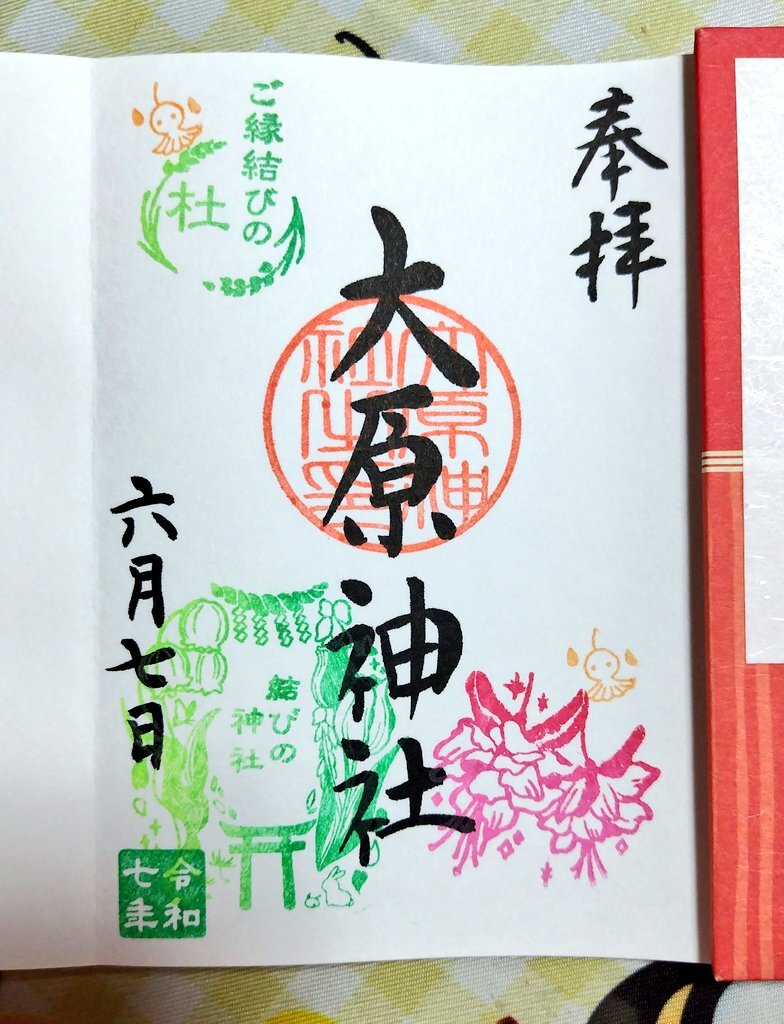 奉拝
大原神社
大原神社之印
ご縁結びの
杜
結びの
神社
六月七日
令和
七年